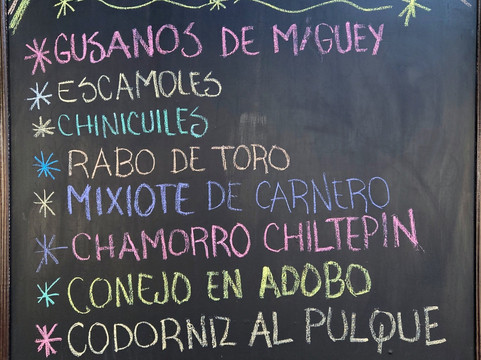 GUSANOS DE MAGUEY
ESCAMOLES
CHINICUILES
RABO DE TORO
MIXIOTE DE CARNERO
CHAMORRO CHILTEPIN
CONEJO EN ADOBO
CODORNIZ AL PULQUE